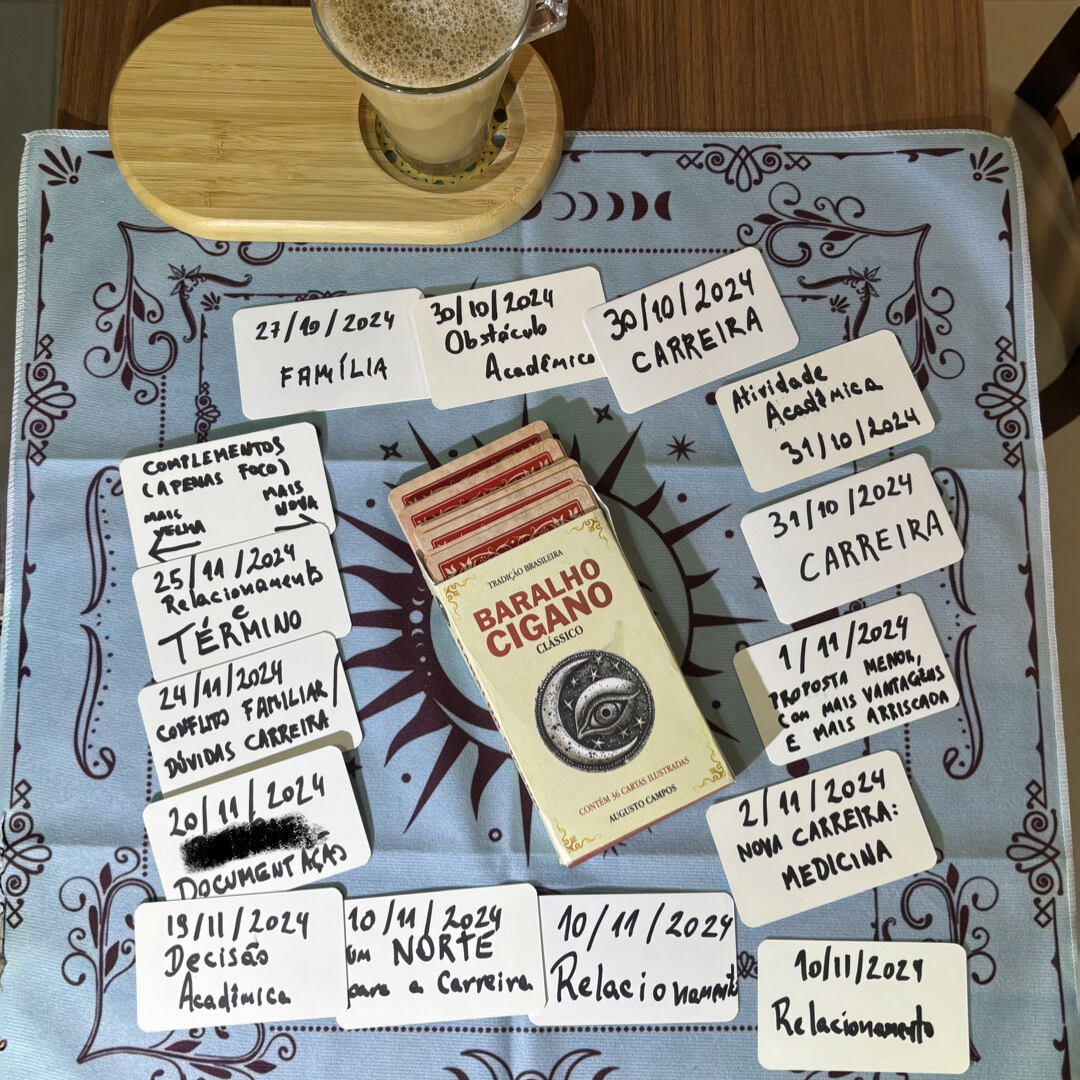 27/10/2024
FAMÍLIA
30/10/2024
Obstáculo
Acadêmico
30/10/2024
CARREIRA
Atividade
Acadêmica
31/10/2024
31/10/2024
CARREIRA
1/11/2024
PROPOSTA MENOR,
COM MAIS VANTAGENS
E MAIS ARRISCADA
2/11/2024
NOVA CARREIRA:
MEDICINA
10/11/2024
Relacionamento
10/11/2024
Relacionamento
10/11/2024
um NORTE
para a Carreira
19/11/2024
Decisão
Acadêmica
20/11/2024
DOCUMENTAÇÃO
24/11/2024
CONFLITO FAMILIAR/
DÚVIDAS CARREIRA
25/11/2024
Relacionamento
e
TÉRMINO
COMPLEMENTOS
(APENAS FOCO)
MAIS
NOVA
MAIS
VELHA
TRADIÇÃO BRASILEIRA
BARALHO
CIGANO
CLÁSSICO
CONTÉM 36 CARTAS ILUSTRADAS
AUGUSTO CAMPOS